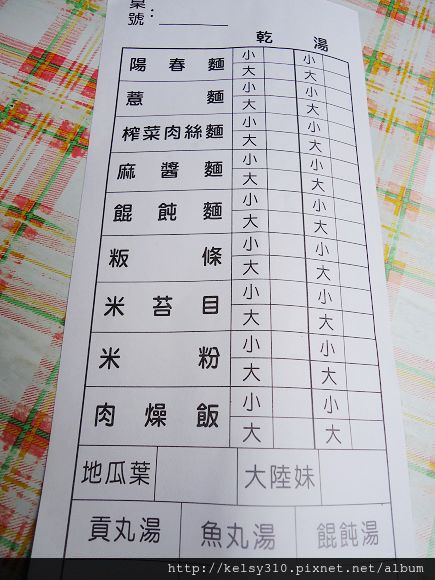 桌號：
乾 湯
陽春麵 小 小
大 大
薏麵 小 小
大 大
榨菜肉絲麵 小 小
大 大
麻醬麵 小 小
大 大
餛飩麵 小 小
大 大
粄條 小 小
大 大
米苔目 小 小
大 大
米粉 小 小
大 大
肉燥飯 小 小
大 大
地瓜葉 大陸妹
貢丸湯 魚丸湯 餛飩湯
http://kelsy310.pixnet.net/album